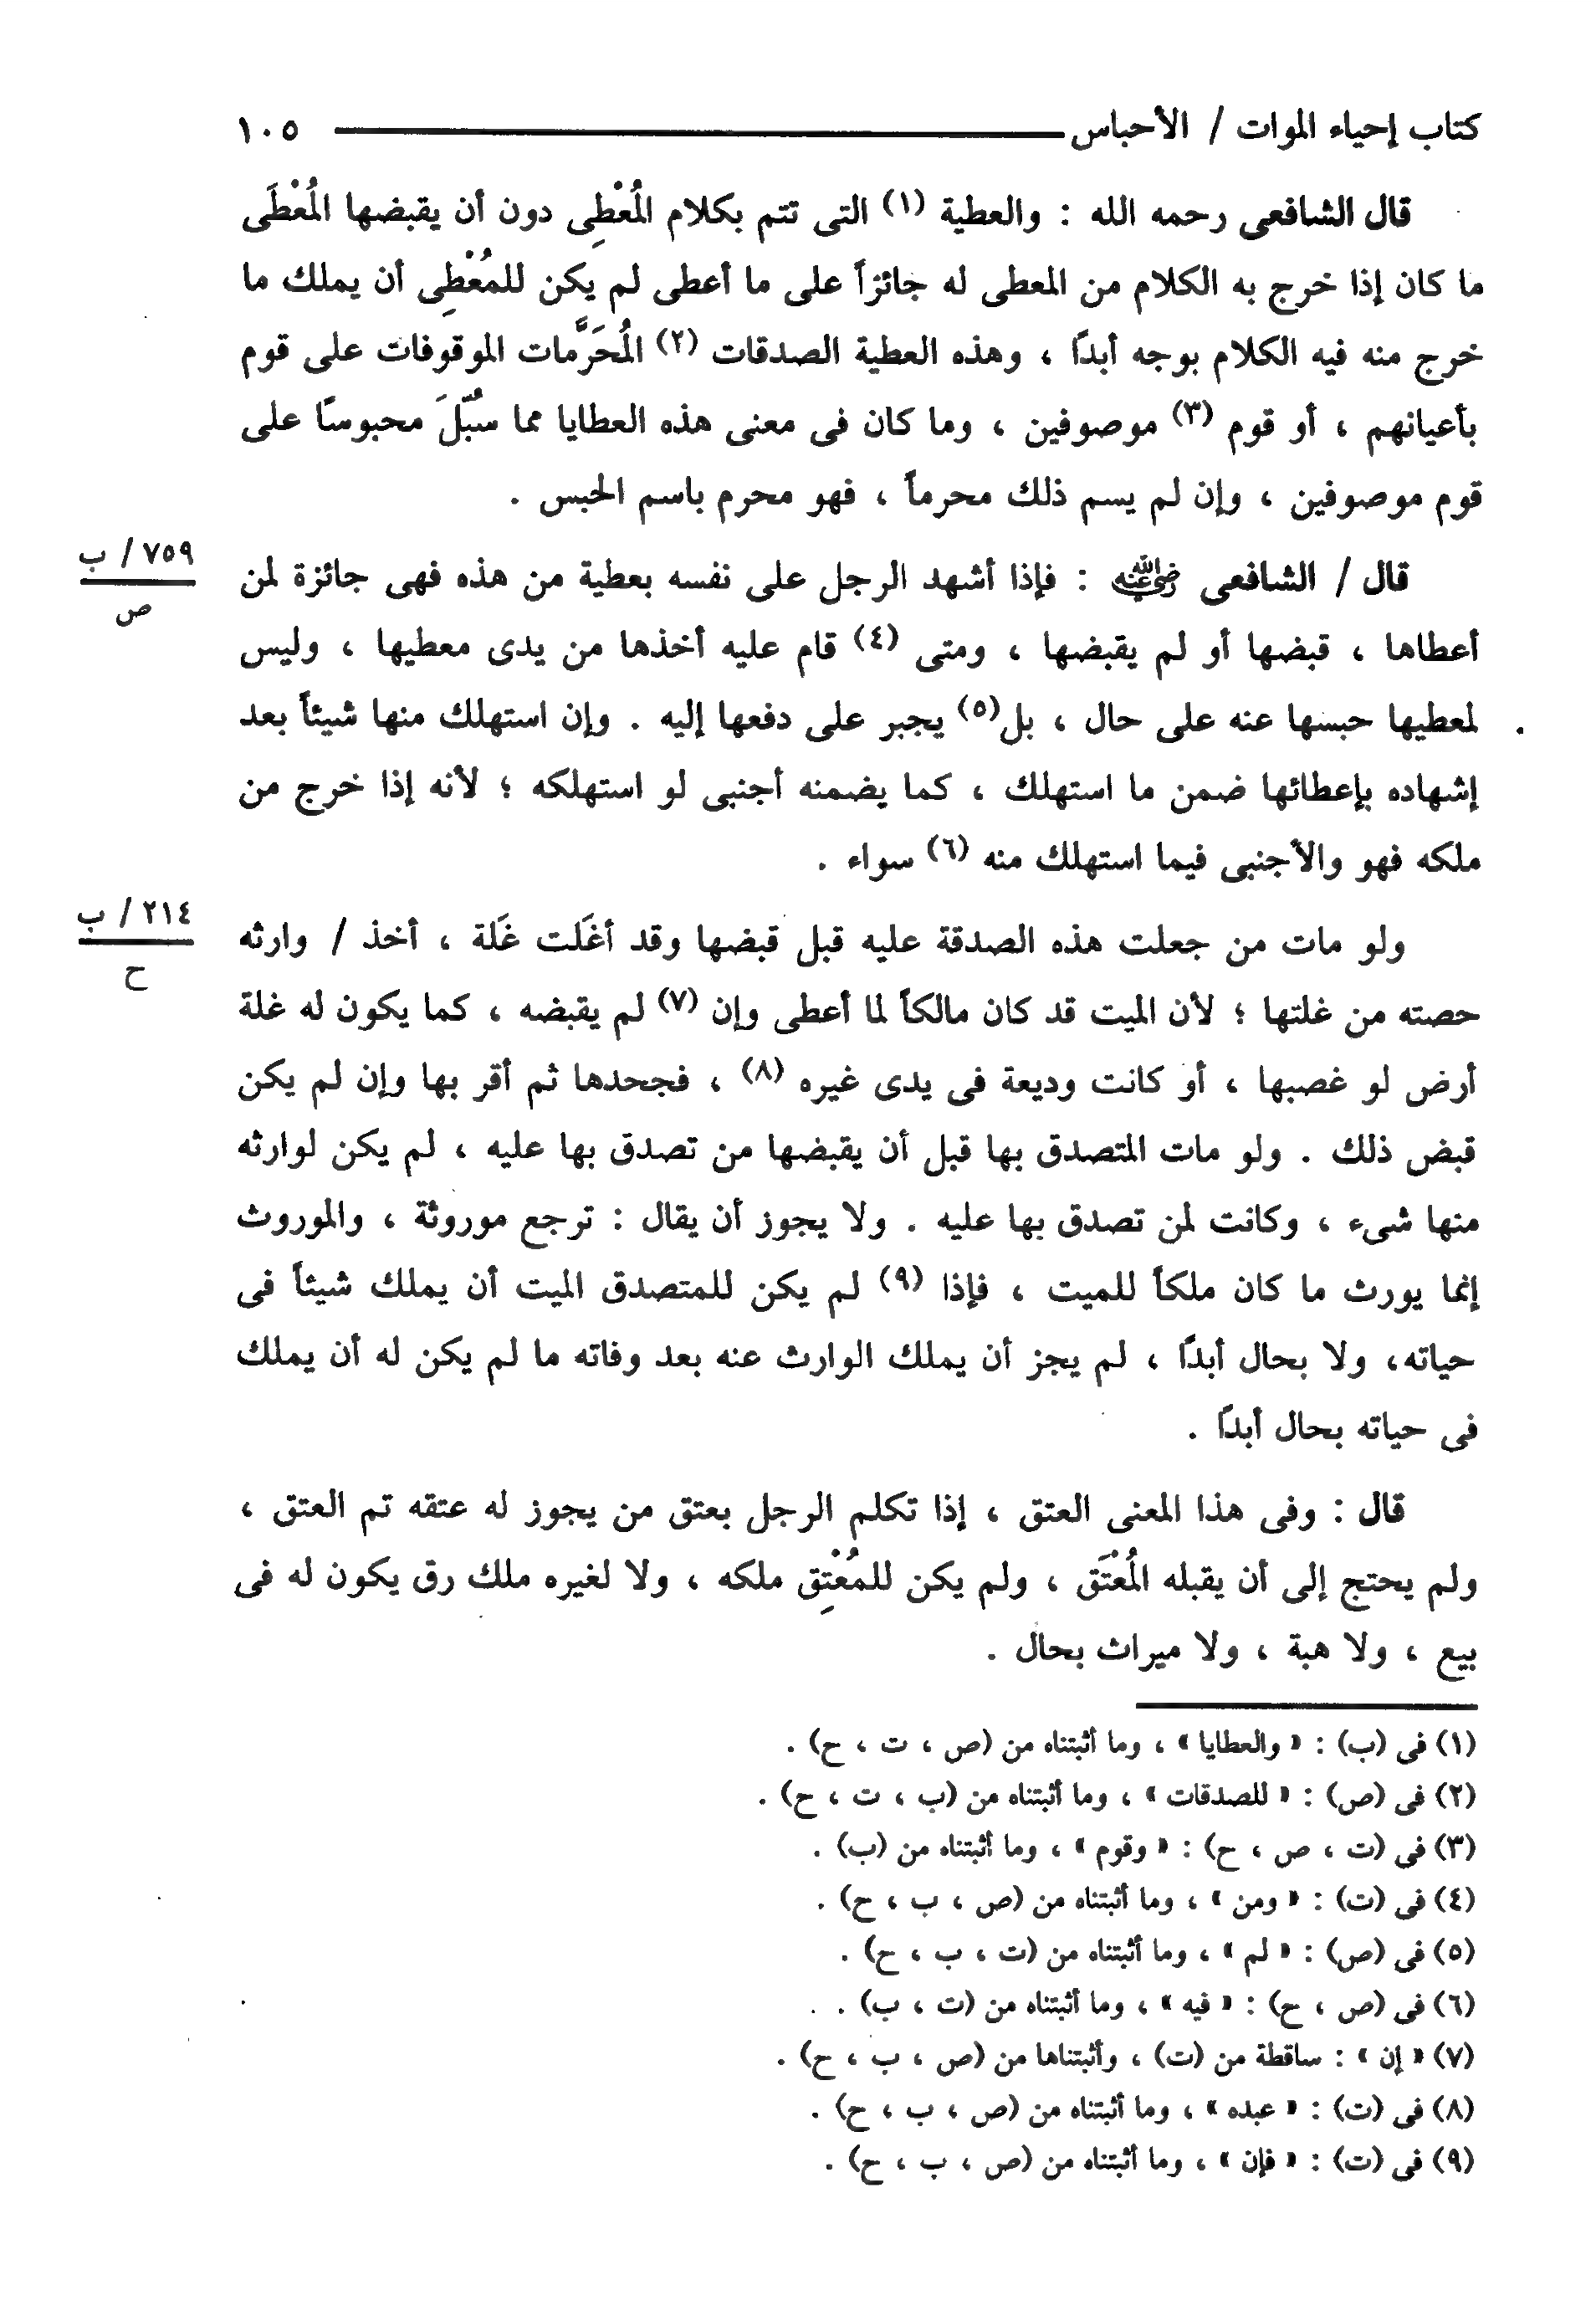 كتاب إحياء الموات / الأحباس ١٠٥
قال الشافعى رحمه الله : والعطية (١) التى تتم بكلام المُعْطِى دون أن يقبضها المُعْطَى
ما كان إذا خرج به الكلام من المعطى له جائزاً على ما أعطى لم يكن للمُعْطِى أن يملك ما
خرج منه فيه الكلام بوجه أبدًا ، وهذه العطية الصدقات (٢) المُحَرَّمات الموقوفات على قوم
بأعيانهم ، أو قوم (٣) موصوفين ، وما كان فى معنى هذه العطايا مما سُبّلَ محبوسًا على
قوم موصوفين ، وإن لم يسم ذلك محرماً ، فهو محرم باسم الحبس .
٧٥٩ / ب
ص
قال / الشافعى رضي الله عنه : فإذا أشهد الرجل على نفسه بعطية من هذه فهى جائزة لمن
أعطاها ، قبضها أو لم يقبضها ، ومتى (٤) قام عليه أخذها من يدى معطيها ، وليس
لمعطيها حبسها عنه على حال ، بل(٥) يجبر على دفعها إليه . وإن استهلك منها شيئاً بعد
إشهاده بإعطائها ضمن ما استهلك ، كما يضمنه أجنبى لو استهلكه ؛ لأنه إذا خرج من
ملكه فهو والأجنبى فيما استهلك منه (٦) سواء .
٢١٤ / ب
ح
ولو مات من جعلت هذه الصدقة عليه قبل قبضها وقد أغَلت غَلة ، أخذ / وارثه
حصته من غلتها ؛ لأن الميت قد كان مالكاً لما أعطى وإن (٧) لم يقبضه ، كما يكون له غلة
أرض لو غصبها ، أو كانت وديعة فى يدى غيره (٨) ، فجحدها ثم أقر بها وإن لم يكن
قبض ذلك . ولو مات المتصدق بها قبل أن يقبضها من تصدق بها عليه ، لم يكن لوارثه
منها شىء ، وكانت لمن تصدق بها عليه . ولا يجوز أن يقال : ترجع موروثة ، والموروث
إنما يورث ما كان ملكاً للميت ، فإذا (٩) لم يكن للمتصدق الميت أن يملك شيئاً فى
حياته، ولا بحال أبدًا ، لم يجز أن يملك الوارث عنه بعد وفاته ما لم يكن له أن يملك
فى حياته بحال أبدًا .
قال : وفى هذا المعنى العتق ، إذا تكلم الرجل بعتق من يجوز له عتقه تم العتق ،
ولم يحتج إلى أن يقبله المُعْتَق ، ولم يكن للمُعْتِق ملكه ، ولا لغيره ملك رق يكون له فى
بيع ، ولا هبة ، ولا ميراث بحال .
(١) فى (ب) : « والعطايا » ، وما أثبتناه من (ص ، ت ، ح) .
(٢) فى (ص) : « للصدقات » ، وما أثبتناه من (ب ، ت ، ح) .
(٣) فى (ت ، ص ، ح) : « وقوم » ، وما أثبتناه من (ب) .
(٤) فى (ت) : « ومن » ، وما أثبتناه من (ص ، ب ، ح) .
(٥) فى (ص) : « لم » ، وما أثبتناه من (ت ، ب ، ح) .
(٦) فى (ص ، ح) : « فيه » ، وما أثبتناه من (ت ، ب) .
(٧) « إن » : ساقطة من (ت) ، وأثبتناها من (ص ، ب ، ح) .
(٨) فى (ت) : « عبده » ، وما أثبتناه من (ص ، ب ، ح) .
(٩) فى (ت) : « فإن » ، وما أثبتناه من (ص ، ب ، ح) .